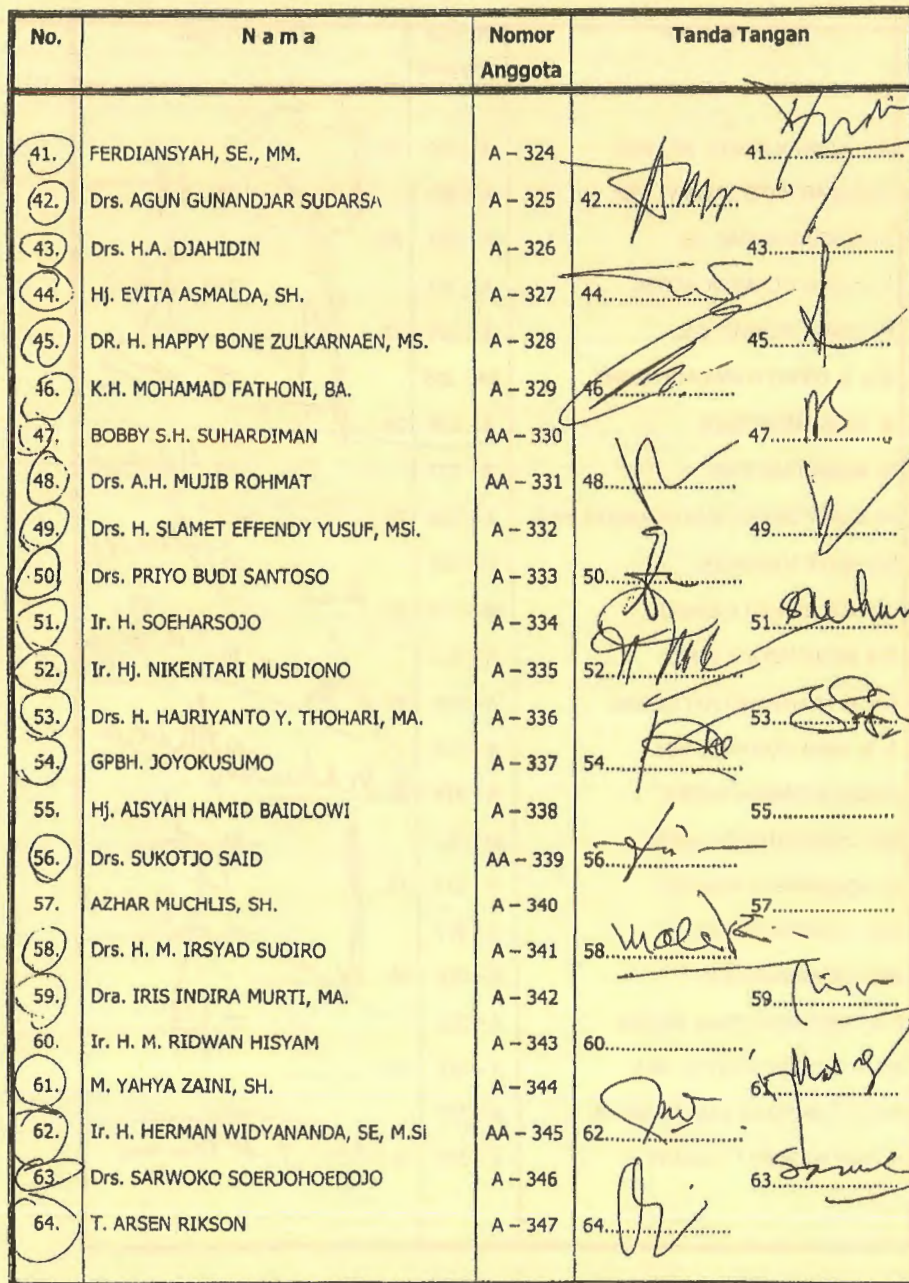 No. N a m a Nomor Anggota Tanda Tangan
41. FERDIANSYAH, SE., MM. A – 324 41.....................
42. Drs. AGUN GUNANDJAR SUDARSA A – 325 42.....................
43. Drs. H.A. DJAHIDIN A – 326 43.....................
44. Hj. EVITA ASMALDA, SH. A – 327 44.....................
45. DR. H. HAPPY BONE ZULKARNAEN, MS. A – 328 45.....................
46. K.H. MOHAMAD FATHONI, BA. A – 329 46.....................
47. BOBBY S.H. SUHARDIMAN AA – 330 47.....................
48. Drs. A.H. MUJIB ROHMAT AA – 331 48.....................
49. Drs. H. SLAMET EFFENDY YUSUF, MSi. A – 332 49.....................
50. Drs. PRIYO BUDI SANTOSO A – 333 50.....................
51. Ir. H. SOEHARSOJO A – 334 51.....................
52. Ir. Hj. NIKENTARI MUSDIONO A – 335 52.....................
53. Drs. H. HAJRIYANTO Y. THOHARI, MA. A – 336 53.....................
54. GPBH. JOYOKUSUMO A – 337 54.....................
55. Hj. AISYAH HAMID BAIDLOWI A – 338 55.....................
56. Drs. SUKOTJO SAID AA – 339 56.....................
57. AZHAR MUCHLIS, SH. A – 340 57.....................
58. Drs. H. M. IRSYAD SUDIRO A – 341 58.....................
59. Dra. IRIS INDIRA MURTI, MA. A – 342 59.....................
60. Ir. H. M. RIDWAN HISYAM A – 343 60.....................
61. M. YAHYA ZAINI, SH. A – 344 61.....................
62. Ir. H. HERMAN WIDYANANDA, SE, M.Si AA – 345 62.....................
63. Drs. SARWOKO SOERJOHOEDOJO A – 346 63.....................
64. T. ARSEN RIKSON A – 347 64.....................